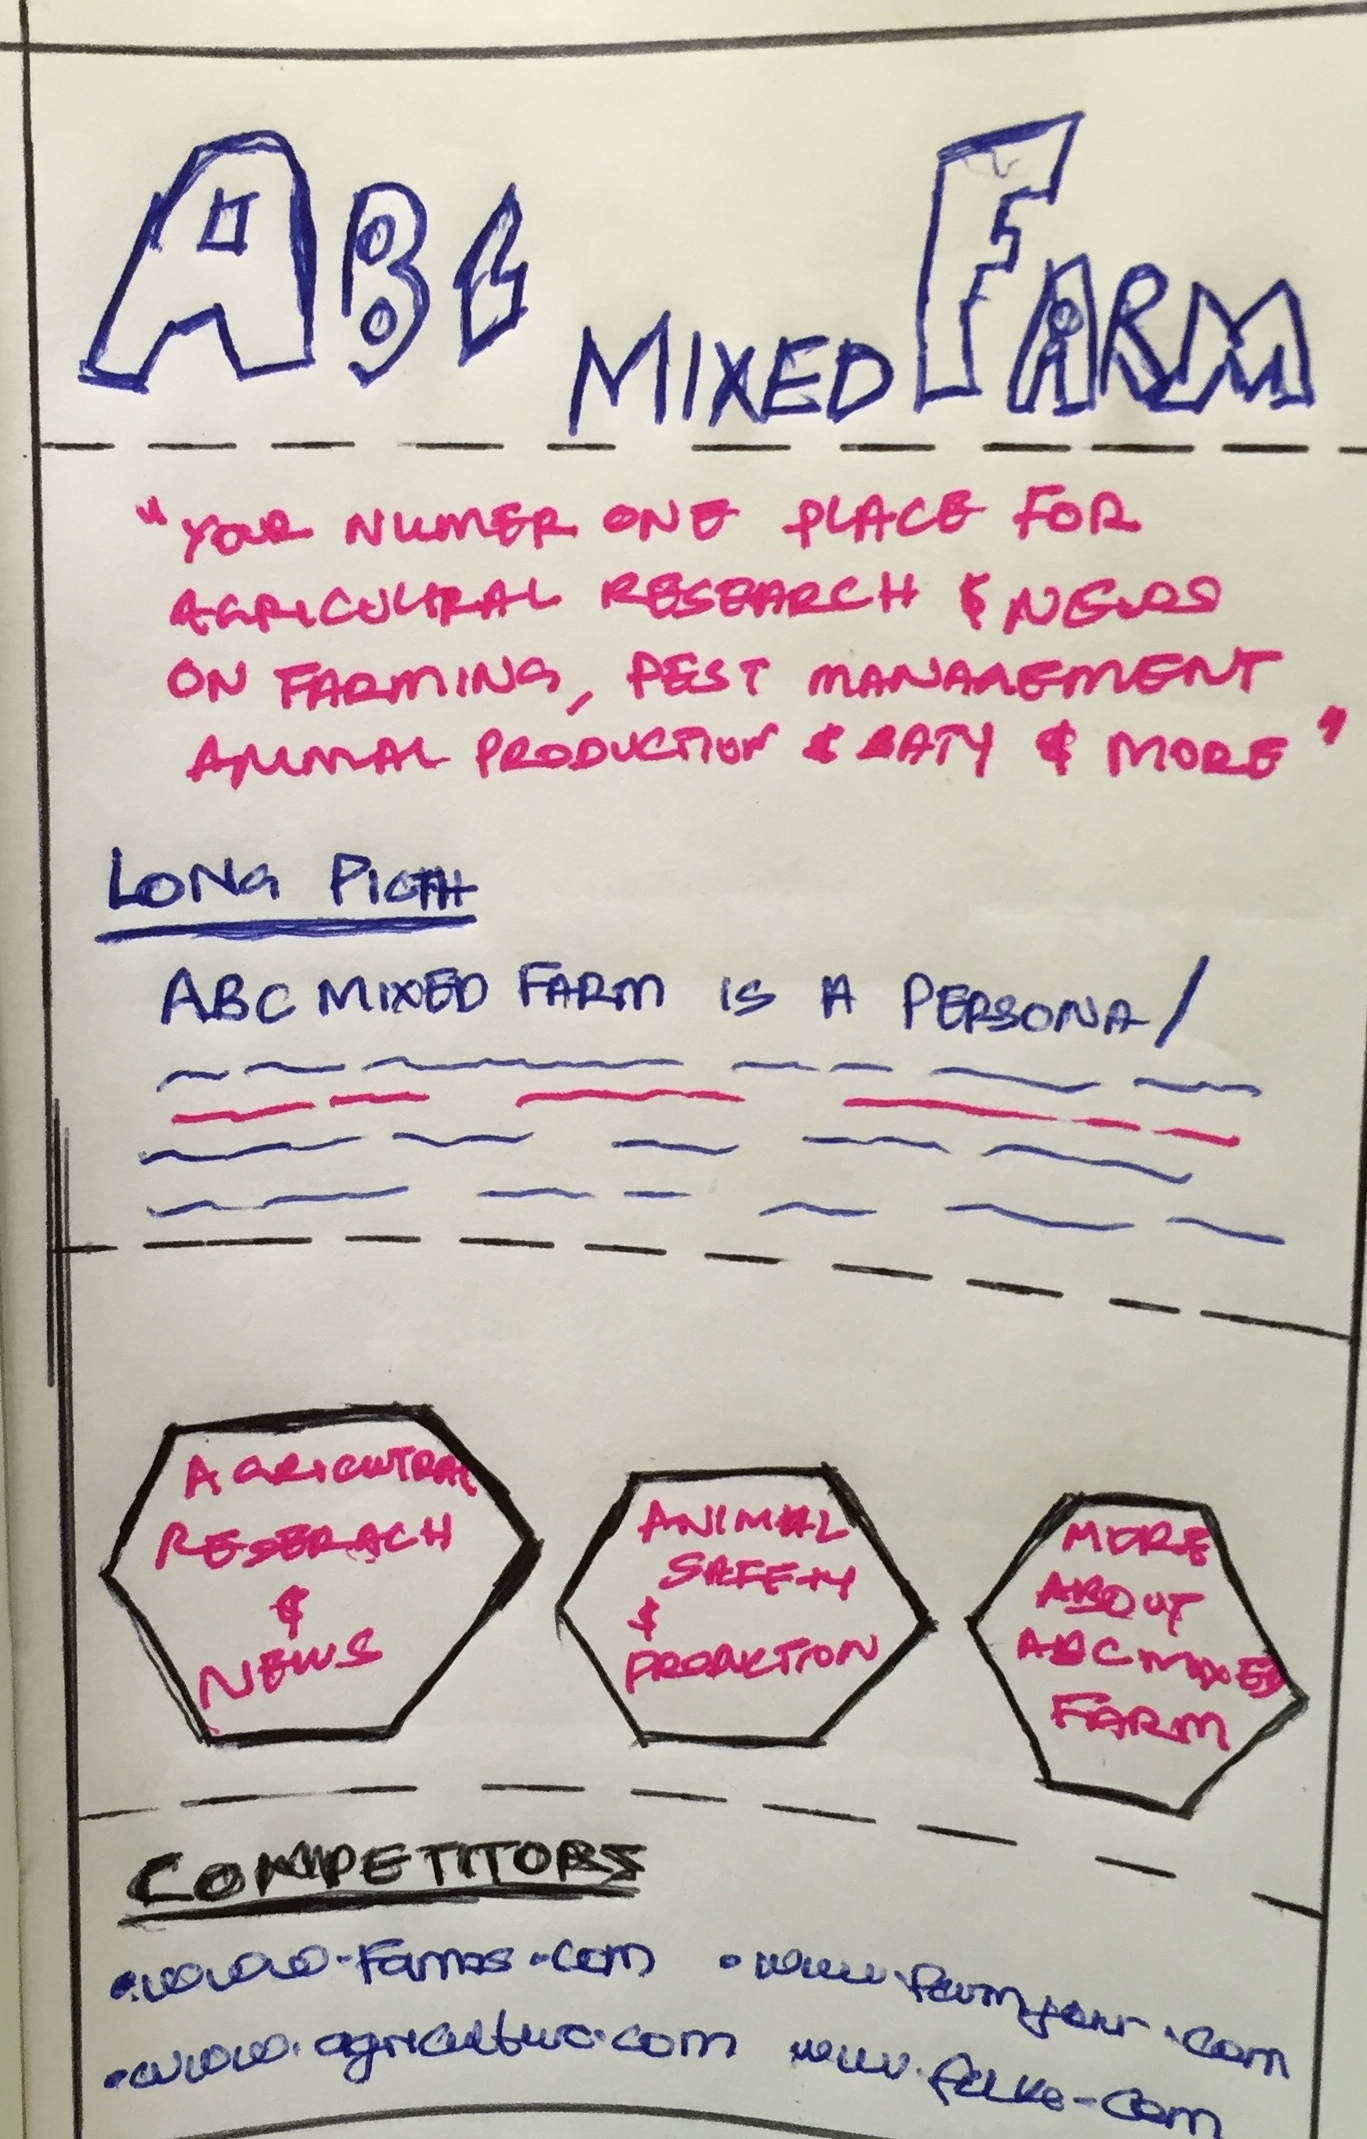 ABC MIXED FARM
"YOUR NUMER ONE PLACE FOR
AGRICULTRAL RESEARCH & NEWS
ON FARMING, PEST MANAGEMENT
ANIMAL PRODUCTION & & MORE"
LONG
ABC MIXED FARM IS A PERSONA/
AGRICULTRAL
RESERACH
&
NEWS
ANIMAL
SAFETY
&
PRODUCTION
MORE
ABOUT
ABC MIXED
FARM
COMPETITORS
•www.Famas.com
•www.farmyour.com
•www.agriculture.com